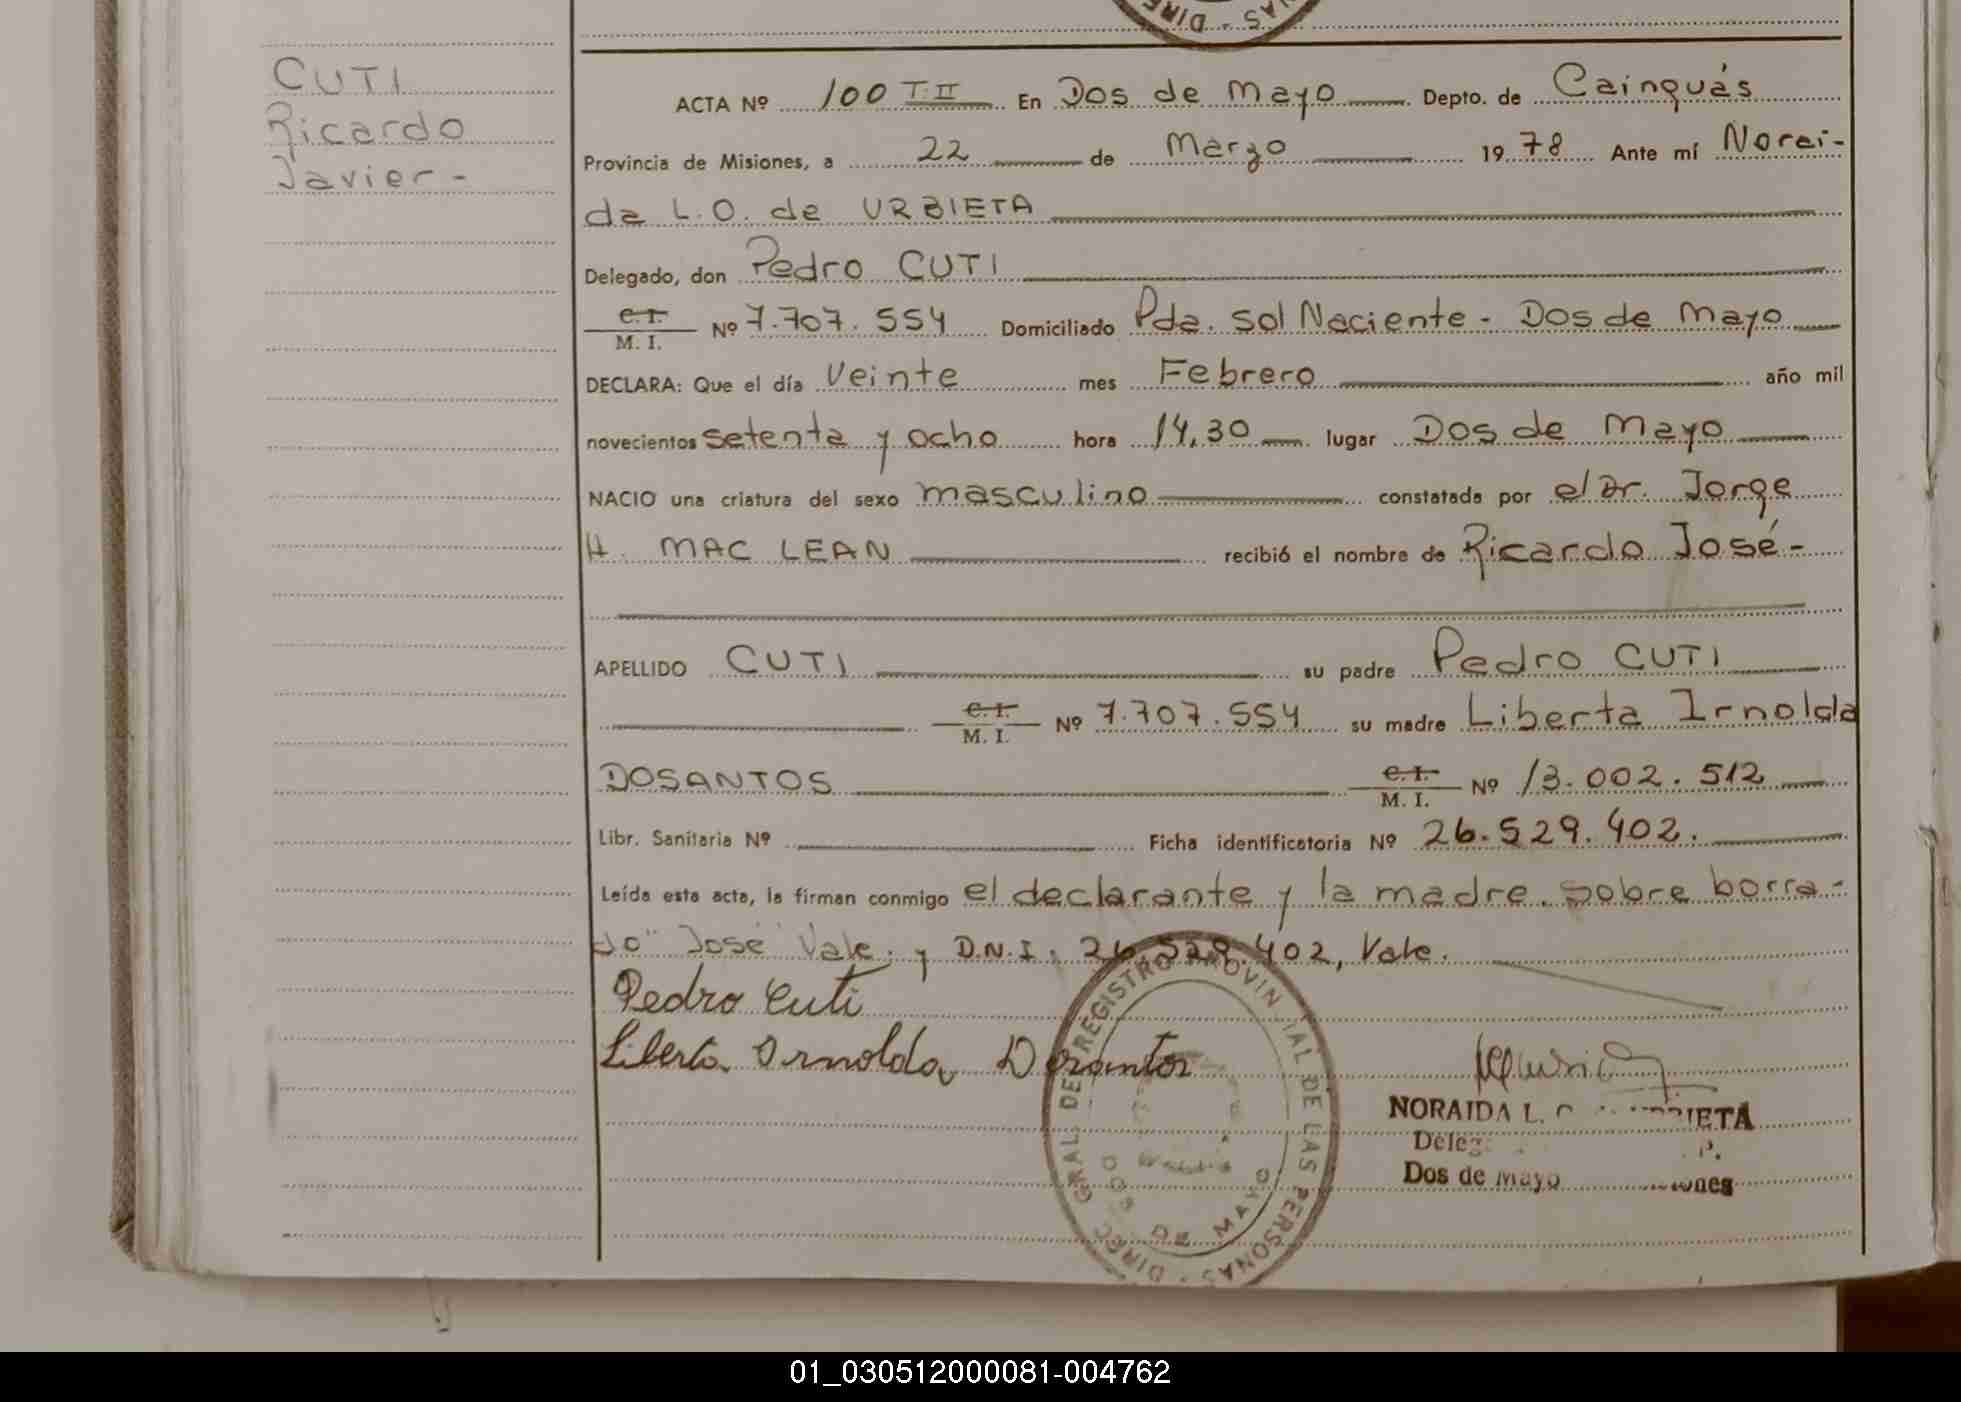 NAS - DIRE
CUTI
Ricardo
Javier -
ACTA Nº 100 T.II En Dos de Mayo Depto. de Cainguás
Provincia de Misiones, a 22 de Marzo 1978 Ante mí Norai-
da L.O. de URBIETA
Delegado, don Pedro CUTI
C.I. M.I. Nº 7.707.554 Domiciliado Pda. sol Naciente - Dos de Mayo
DECLARA: Que el día Veinte mes Febrero año mil
novecientos setenta y ocho hora 14,30 lugar Dos de Mayo
NACIO una criatura del sexo masculino constatada por el Dr. Jorge
H. MAC LEAN recibió el nombre de Ricardo José-
APELLIDO CUTI su padre Pedro CUTI
C.I. M.I. Nº 7.707.554 su madre Liberta Irnolda
DOSANTOS C.I. M.I. Nº 13.002.512
Libr. Sanitaria Nº Ficha identificatoria Nº 26.529.402.
Leída esta acta, la firman conmigo el declarante y la madre. sobre borra-
do" José" Vale. y D.N.I. 26.529.402, Vale.
Pedro Cuti
Liberta Irnolda Dosantos
DIREC GRAL DE REGISTRO PROVINCIAL DE LAS PERSONAS
DOS DE MAYO
NORAIDA L.
Dos de Mayo
01_030512000081-004762